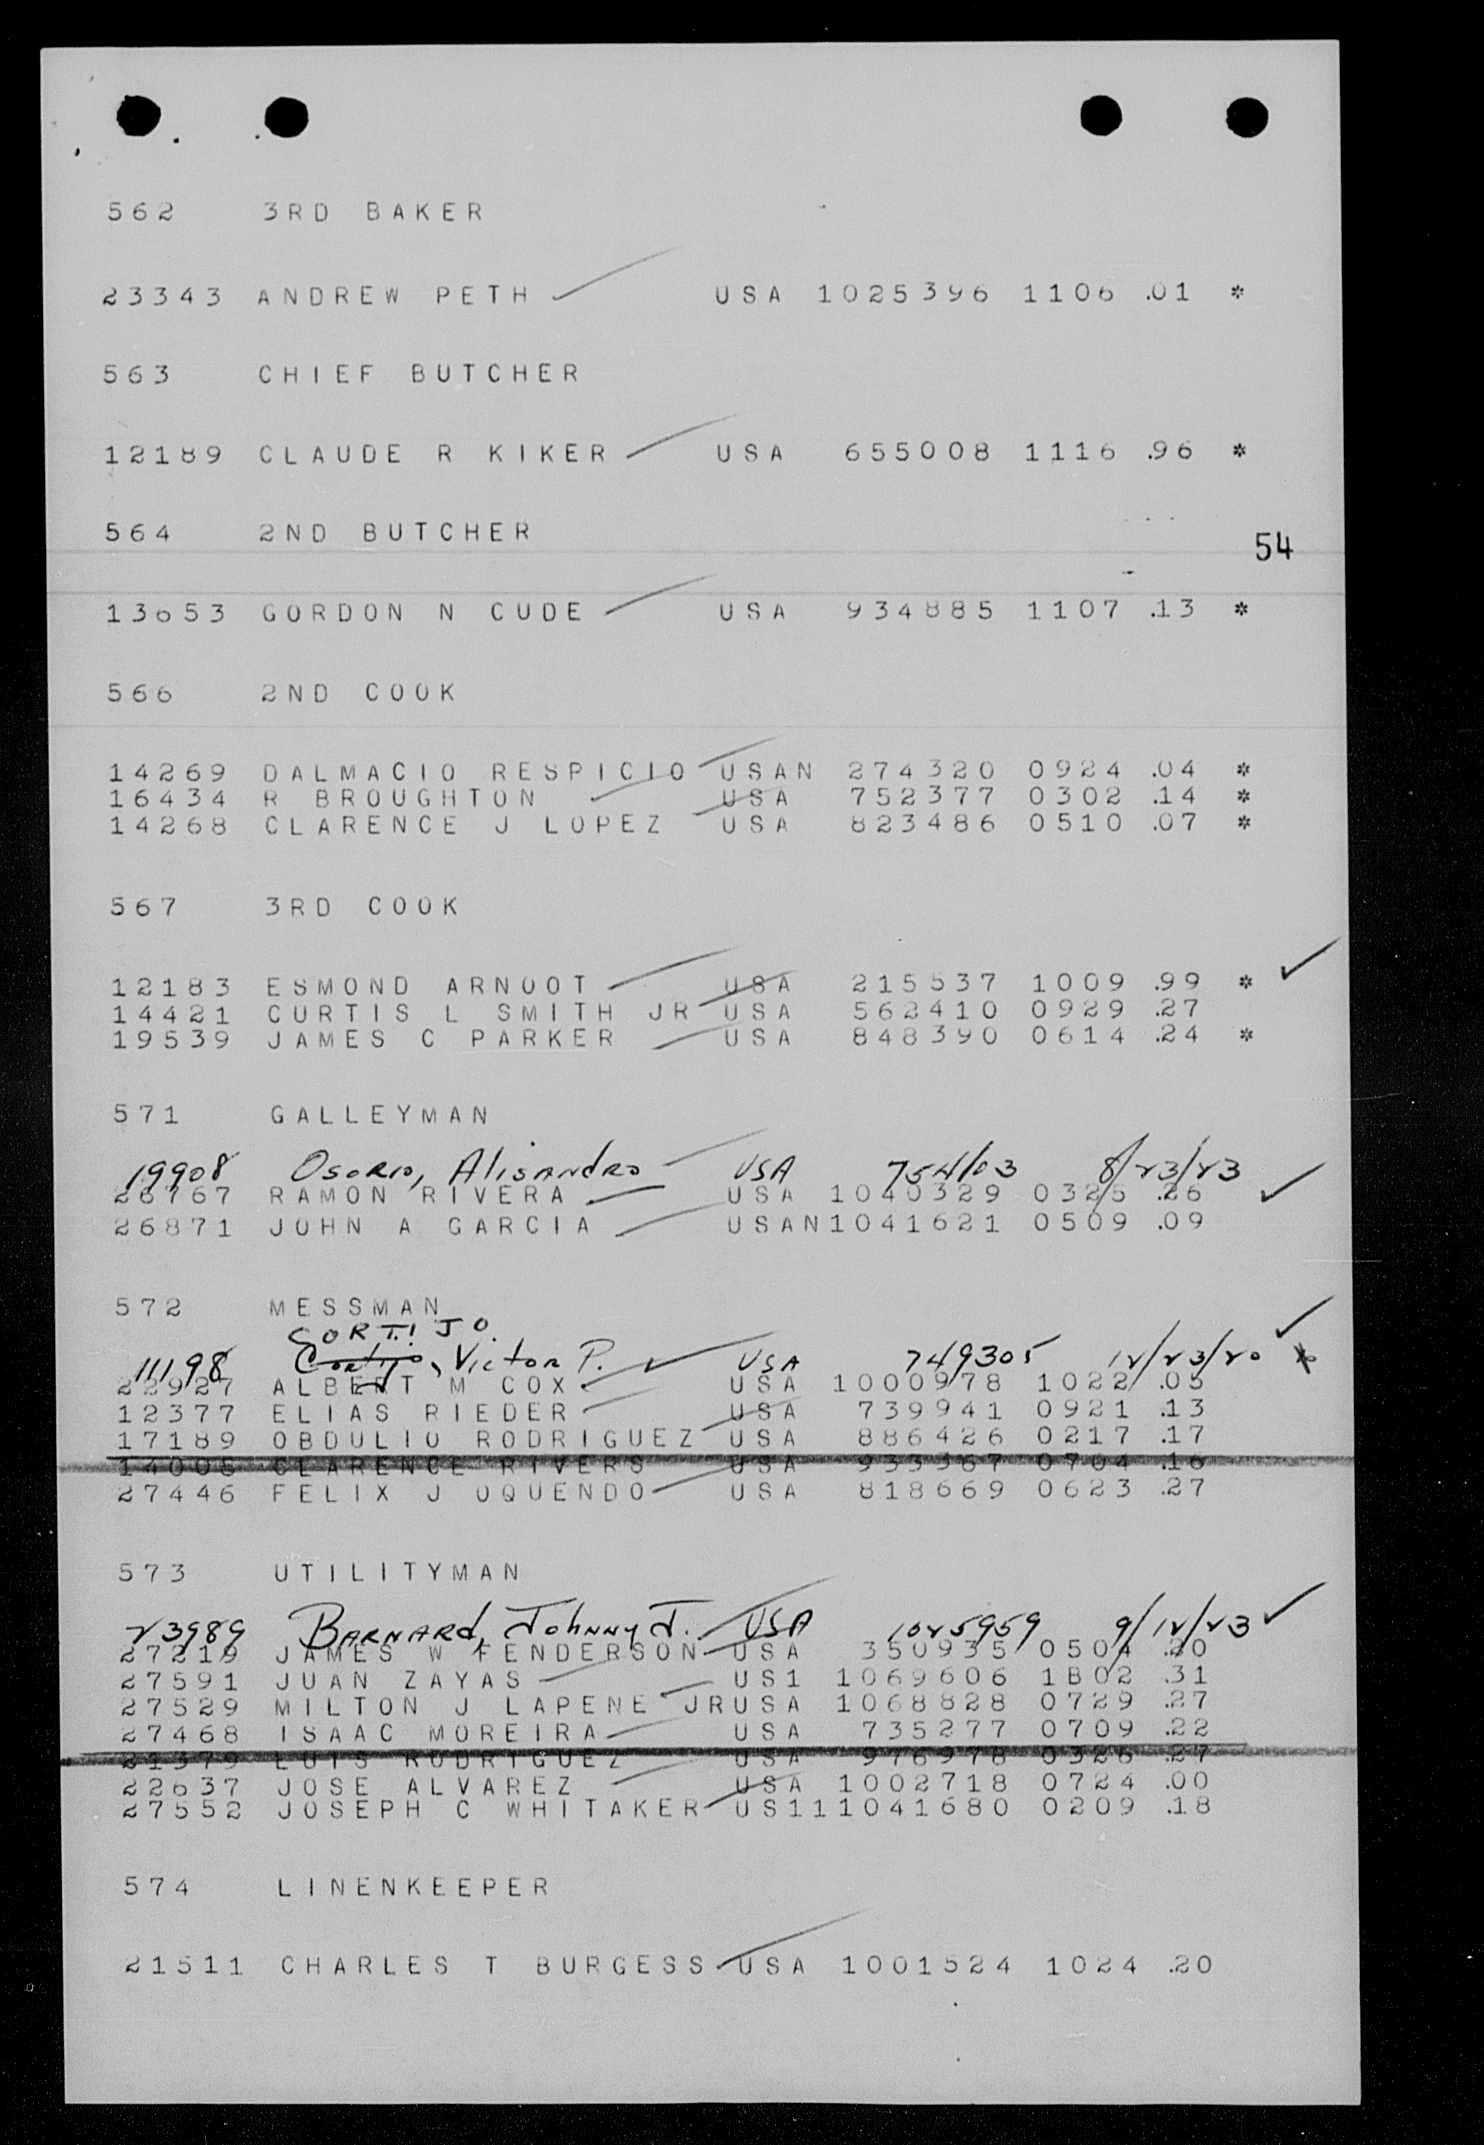 562 3RD BAKER
23343 ANDREW PETH USA 1025396 1106 .01 *
563 CHIEF BUTCHER
12189 CLAUDE R KIKER USA 655008 1116 .96 *
564 2ND BUTCHER
54
13653 GORDON N CUDE USA 934885 1107 .13 *
566 2ND COOK
14269 DALMACIO RESPICIO USAN 274320 0924 .04 *
16434 R BROUGHTON USA 752377 0302 .14 *
14268 CLARENCE J LOPEZ USA 823486 0510 .07 *
567 3RD COOK
12183 ESMOND ARNOOT USA 215537 1009 .99 *
14421 CURTIS L SMITH JR USA 562410 0929 .27
19539 JAMES C PARKER USA 848390 0614 .24 *
571 GALLEYMAN
19908 Osorio, Alisandro USA 754103 8/23/23
26767 RAMON RIVERA USA 1040329 0325 .26
26871 JOHN A GARCIA USAN1041621 0509 .09
572 MESSMAN
CORTIJO.
11198 Cortijo, Victor P. USA 749305 12/23/20 *
22927 ALBERT M COX USA 1000978 1022 .05
12377 ELIAS RIEDER USA 739941 0921 .13
17189 OBDULIO RODRIGUEZ USA 886426 0217 .17
CLARENCE RIVERS USA 0704 .16
27446 FELIX J OQUENDO USA 818669 0623 .27
573 UTILITYMAN
23989 Barnard, Johnny J. USA 1025959 9/12/23
27219 JAMES W FENDERSON USA 350935 0504 .20
27591 JUAN ZAYAS US1 1069606 1802 .31
27529 MILTON J LAPENE JRUSA 1068828 0729 .27
27468 ISAAC MOREIRA USA 735277 0709 .22
21379 LUIS RODRIGUEZ USA 976978 0326 .27
22637 JOSE ALVAREZ USA 1002718 0724 .00
27552 JOSEPH C WHITAKER US111041680 0209 .18
574 LINENKEEPER
21511 CHARLES T BURGESS USA 1001524 1024 .20